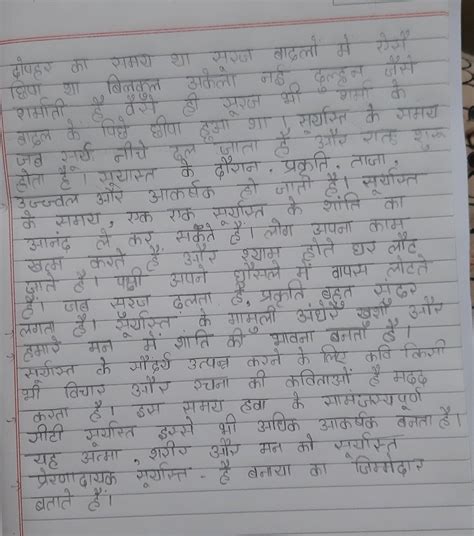 दोपहर का समय था सूरज बादलों मे ऐसे
छिपा था बिलकुल अकेला नई दुल्हन जैसे
शर्माती है वैसे ही सूरज भी शर्मा के
बादल के पिछे छीपा हुआ था। सूर्यास्त के समय
जब सूर्य नीचे ढल जाता है और रात शुरू
होता है। सूर्यास्त के दौरान, प्रकृति, ताजा,
उज्ज्वल और आकर्षक हो जाती है। सूर्यास्त
के समय, एक एक सूर्यास्त के शांति का
आनंद ले कर सकते हैं। लोग अपना काम
खत्म करते हैं और श्याम होते घर लौट
जाते है। पक्षी अपने घोंसले में वापस लौटते
हैं। जब सूरज ढलता है, प्रकृति बहुत सुंदर
लगता है। सूर्यास्त के मामुली अंधेरे खुशी और
हमारे मन में शांति की भावना बनाता है।
सूर्यास्त के सौंदर्य उत्पन्न करने के लिए कवि किसी
भी विचार और रचना की कविताओं है मदद
करता है। इस समय हवा के सामंजस्यपूर्ण
सीटी सूर्यास्त इससे भी अधिक आकर्षक बनता है।
यह आत्मा, शरीर और मन को सूर्यास्त
प्रेरणादायक सूर्यास्त - है बनाया का जिम्मेदार
बताते हैं।